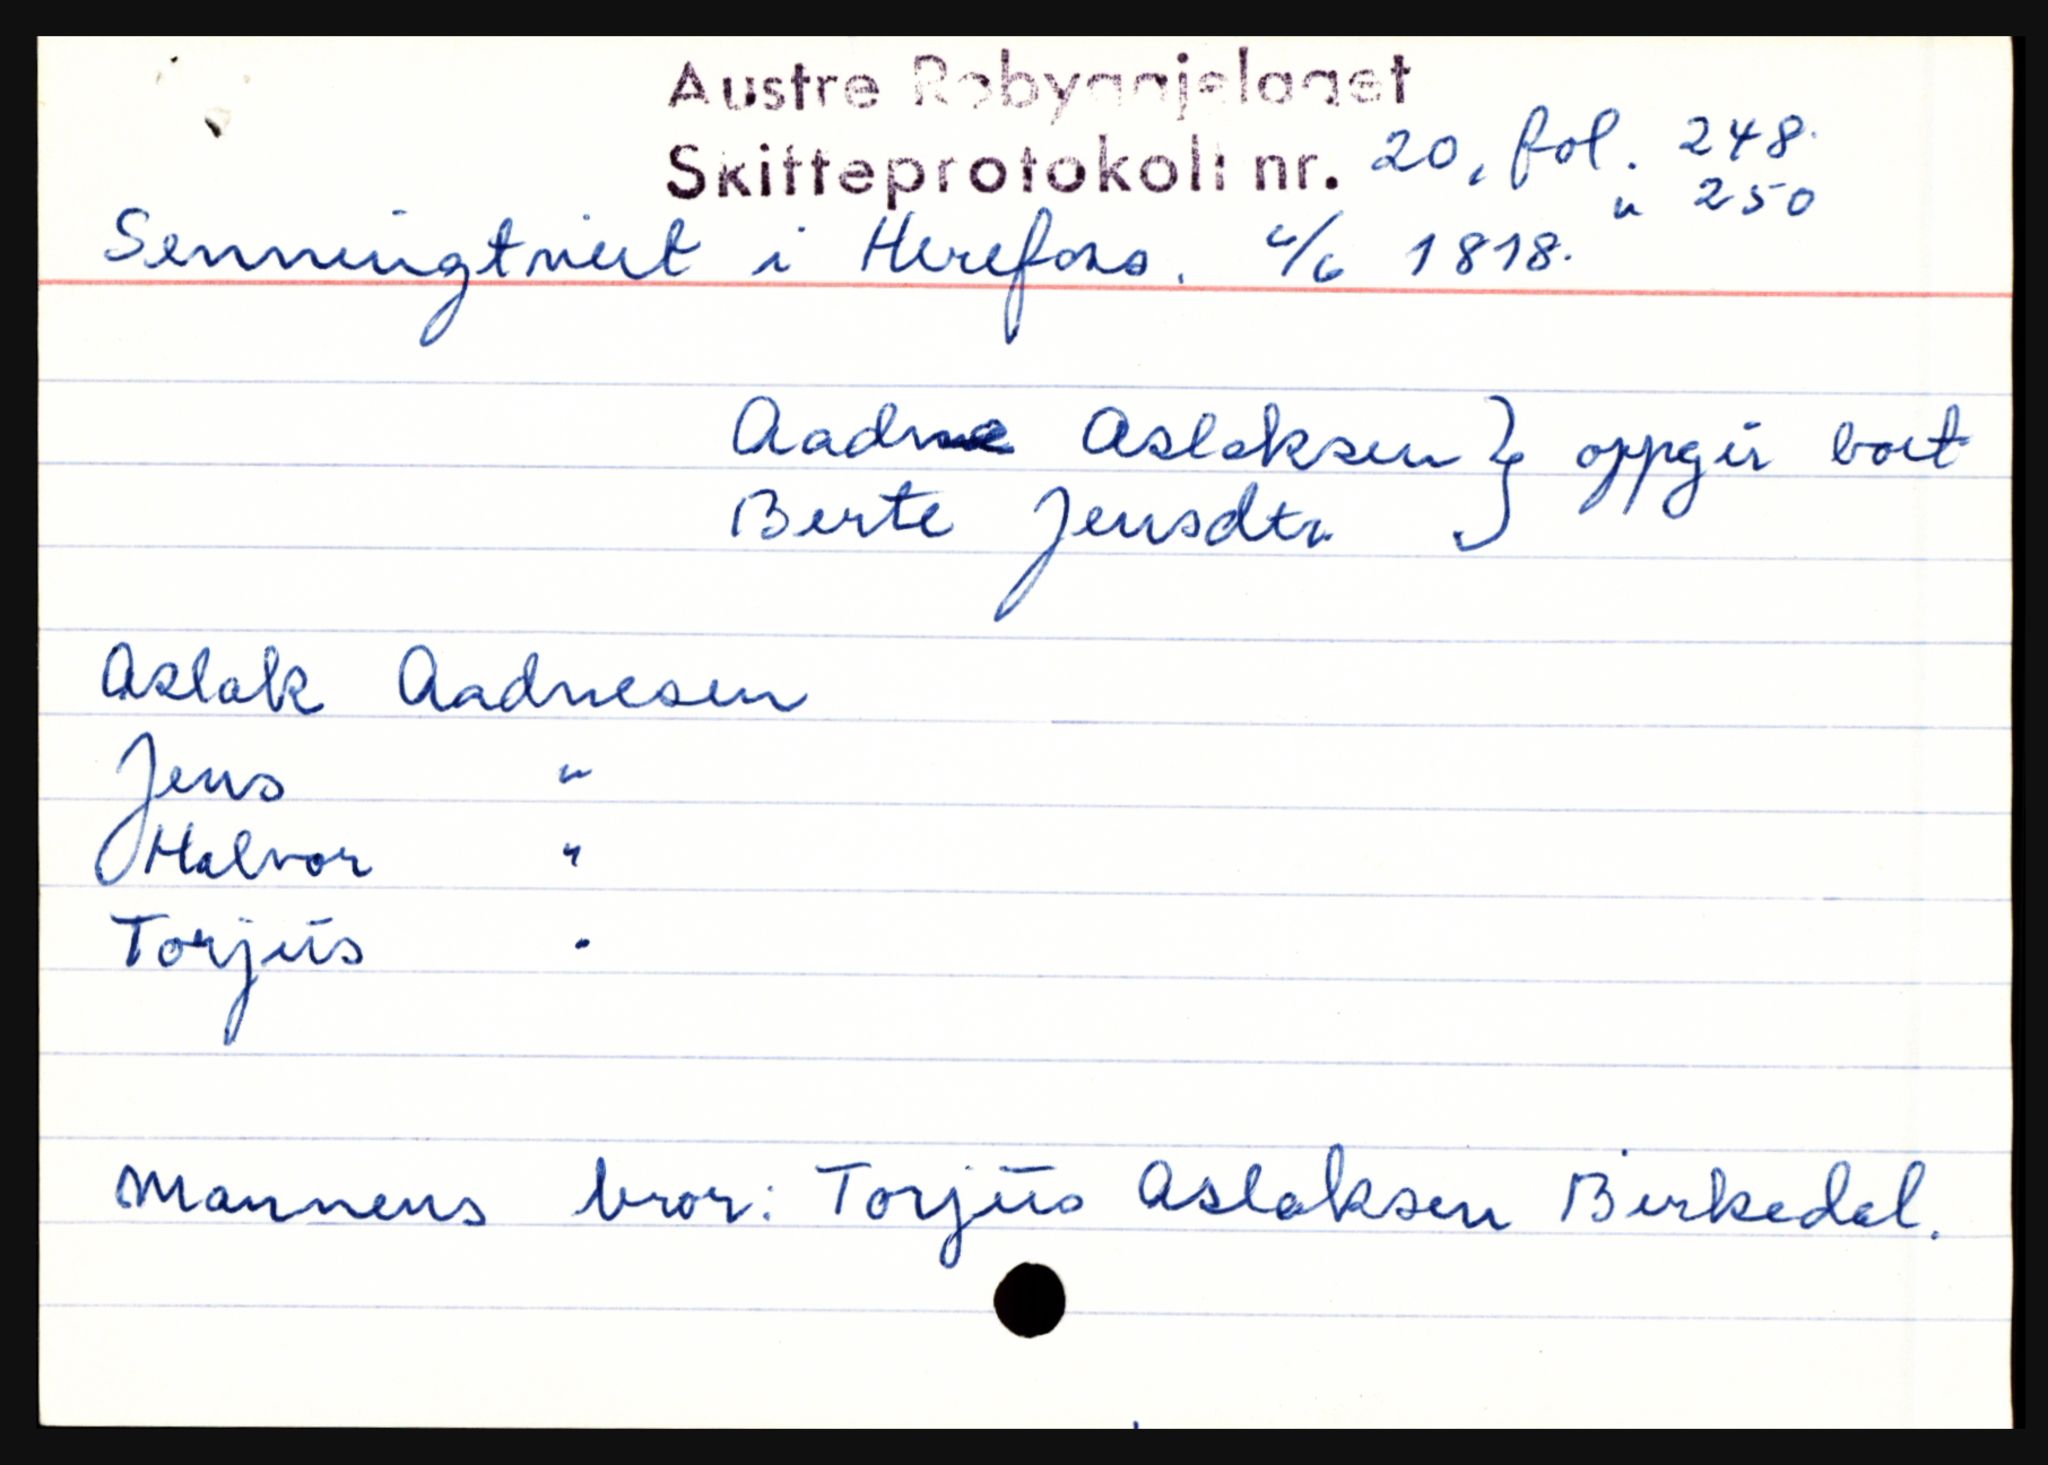 Austre Robyggjelaget
Skifteprotokoll nr. 20, fol. 248.
" 250
Senningtveit i Herefoss. 4/6 1818.
Aadne Aslaksen } oppgir boet
Berte Jensdtr.
Aslak Aadnesen
Jens "
Halvor "
Torjus "
Mannens bror: Torjus Aslaksen Birkedal.